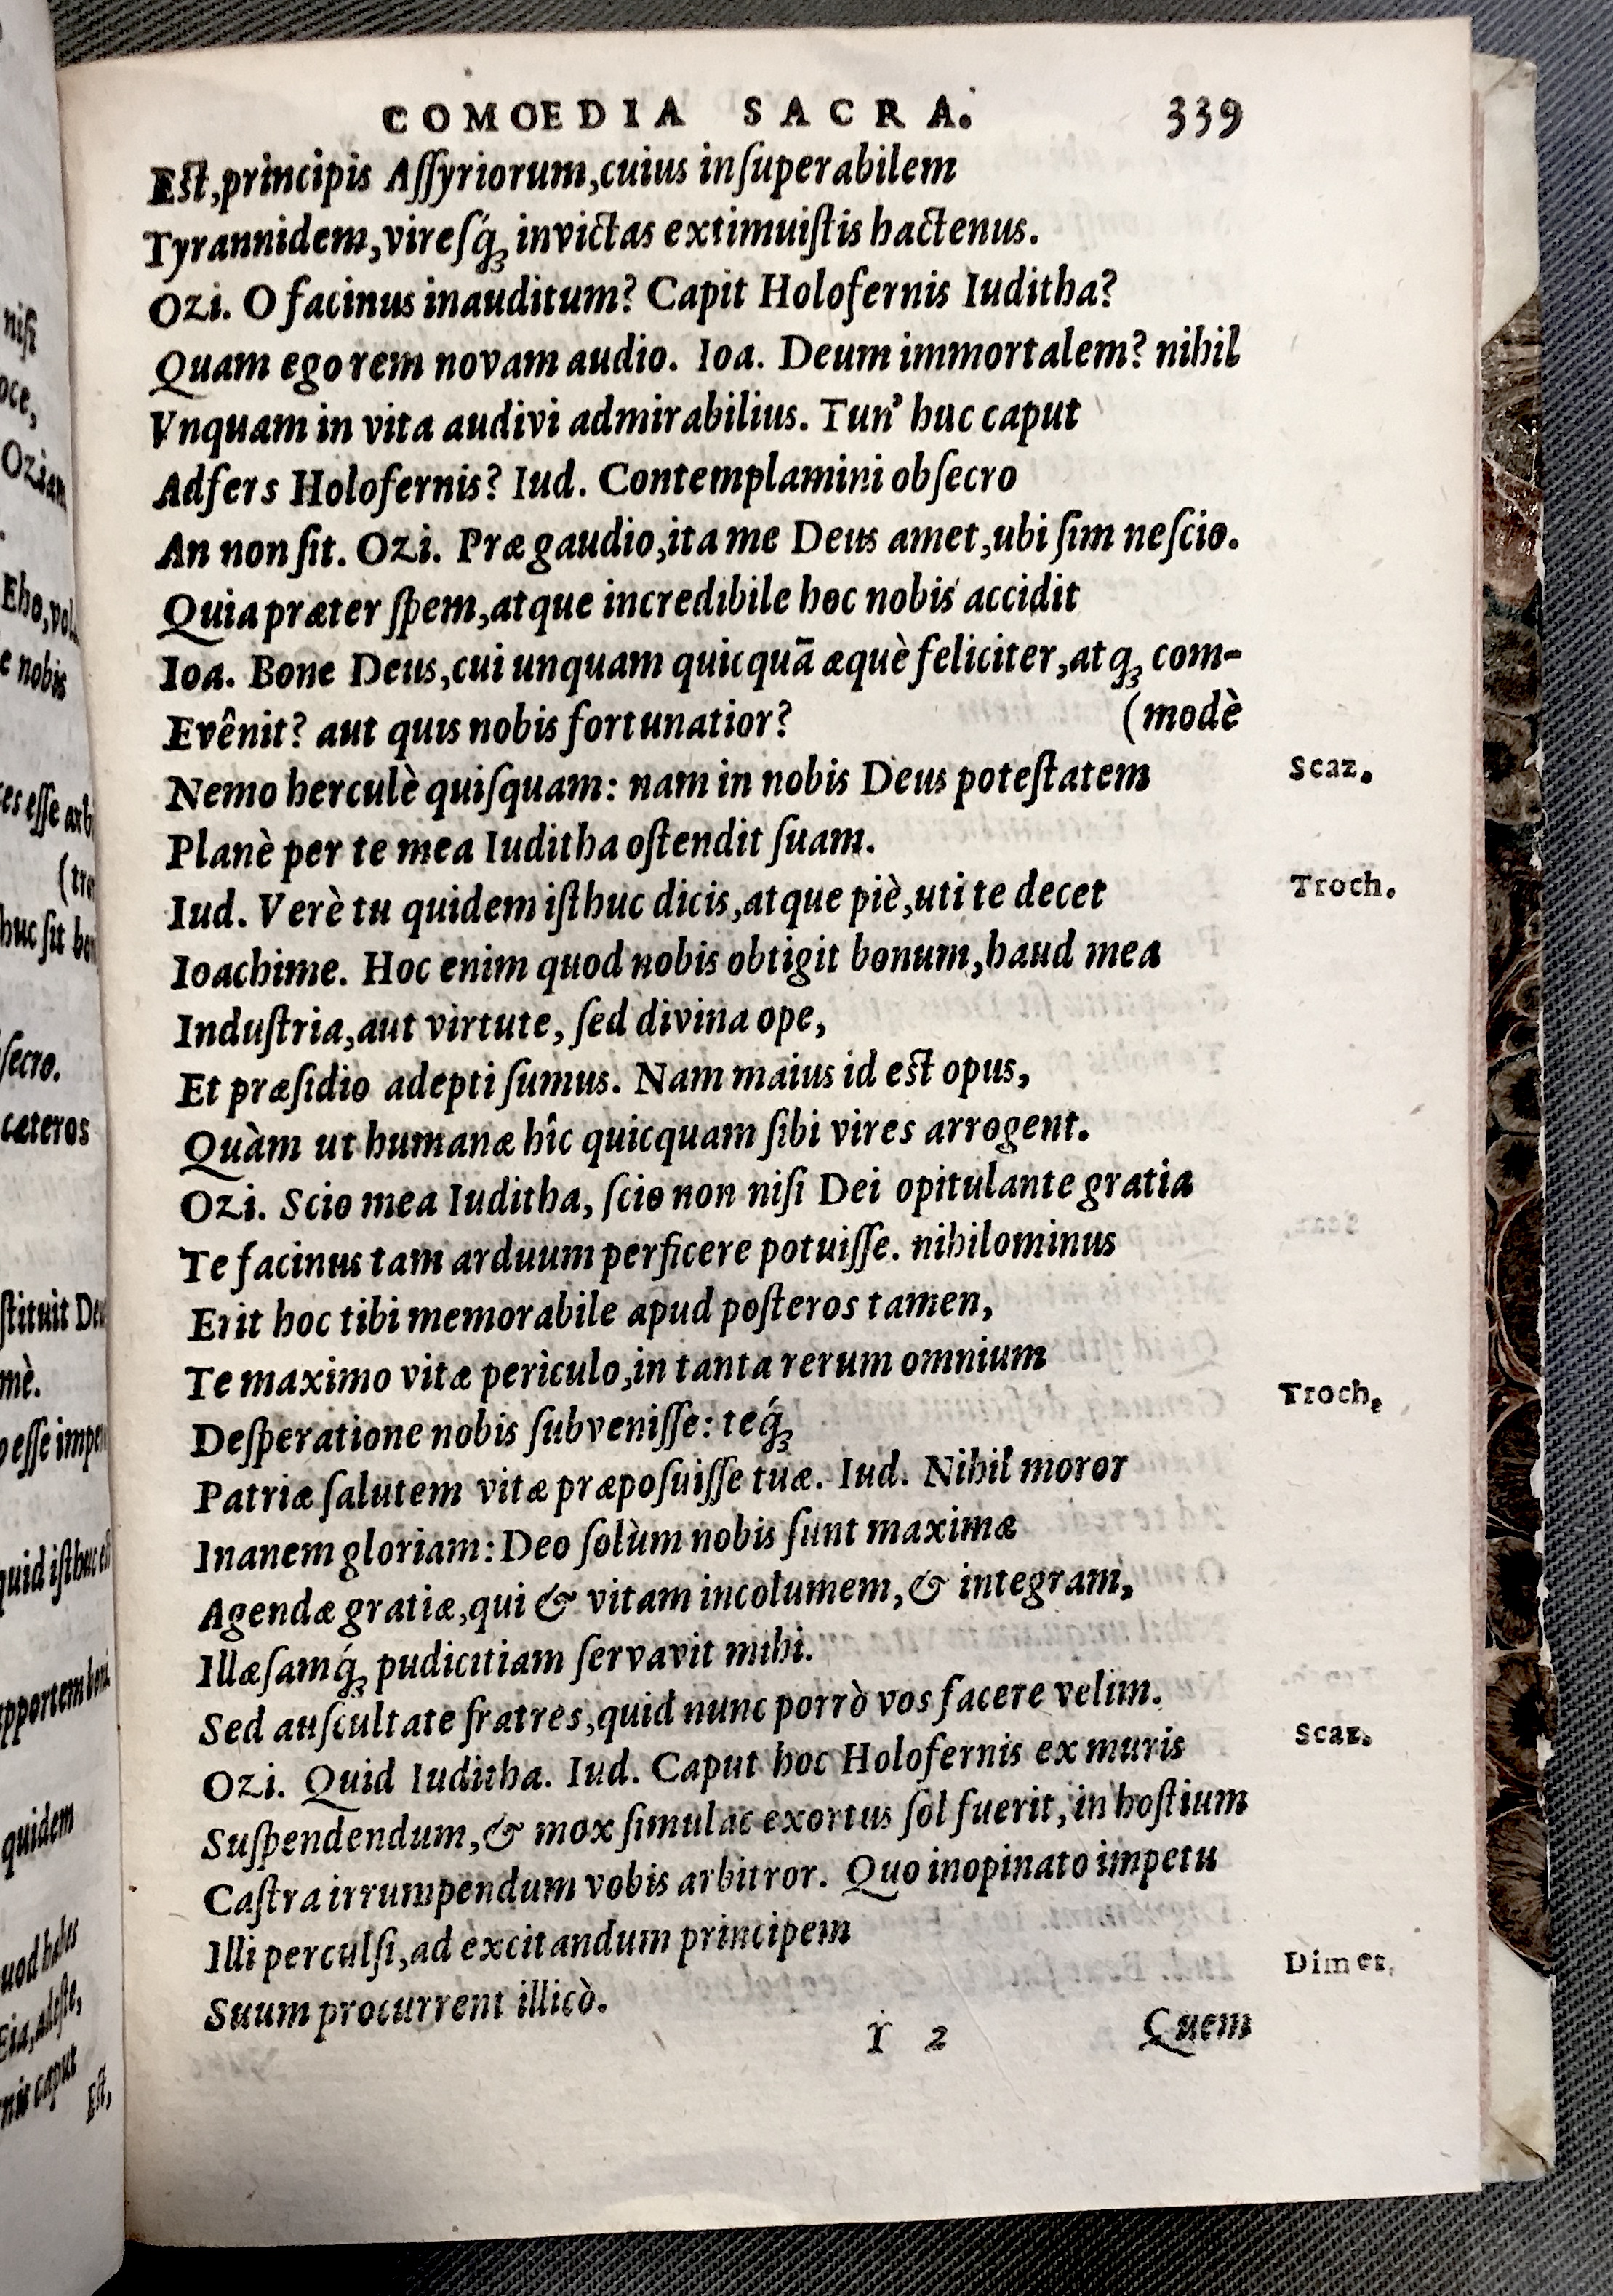 COMOEDIA SACRA. 339
Eſt,principis Aſſyriorum,cuius inſuperabilem
Tyrannidem,vireſq́ꝫ invictas extimuiſtis hactenus.
Ozi. O facinus inauditum? Capit Holofernis Iuditha?
Quam ego rem novam audio. Ioa. Deum immortalem? nihil
Vnquam in vita audivi admirabilius. Tun' huc caput
Adfers Holofernis? Iud. Contemplamini obſecro
An non ſit. Ozi. Præ gaudio,ita me Deus amet,ubi ſim neſcio.
Quia præter ſpem,atque incredibile hoc nobis accidit
Ioa. Bone Deus,cui unquam quicquã æquè feliciter,atqꝫ com-
Evênit? aut quis nobis fortunatior? (modè
Nemo herculè quiſquam: nam in nobis Deus poteſtatem Scaz.
Planè per te mea Iuditha oſtendit ſuam.
Iud. Verè tu quidem iſthuc dicis,atque piè,uti te decet Troch.
Ioachime. Hoc enim quod nobis obtigit bonum,haud mea
Induſtria,aut virtute, ſed divina ope,
Et præſidio adepti ſumus. Nam maius id eſt opus,
Quàm ut humanæ hîc quicquam ſibi vires arrogent.
Ozi. Scio mea Iuditha, ſcio non niſi Dei opitulante gratia
Te facinus tam arduum perficere potuiſſe. nihilominus
Erit hoc tibi memorabile apud poſteros tamen,
Te maximo vitæ periculo,in tanta rerum omnium
Deſperatione nobis ſubveniſſe: teq́ꝫ Troch.
Patriæ ſalutem vitæ præpoſuiſſe tuæ. Iud. Nihil moror
Inanem gloriam: Deo ſolùm nobis ſunt maximæ
Agendæ gratiæ,qui & vitam incolumem,& integram,
Illæſamq́ꝫ pudicitiam ſervavit mihi.
Sed auſcultate fratres,quid nunc porrò vos facere velim.
Ozi. Quid Iuditha. Iud. Caput hoc Holofernis ex muris Scaz.
Suſpendendum,& mox ſimulac exortus ſol fuerit,in hoſtium
Caſtra irrumpendum vobis arbitror. Quo inopinato impetu
Illi perculſi,ad excitandum principem
Suum procurrent illicò. Dimet.
I 2 Quem